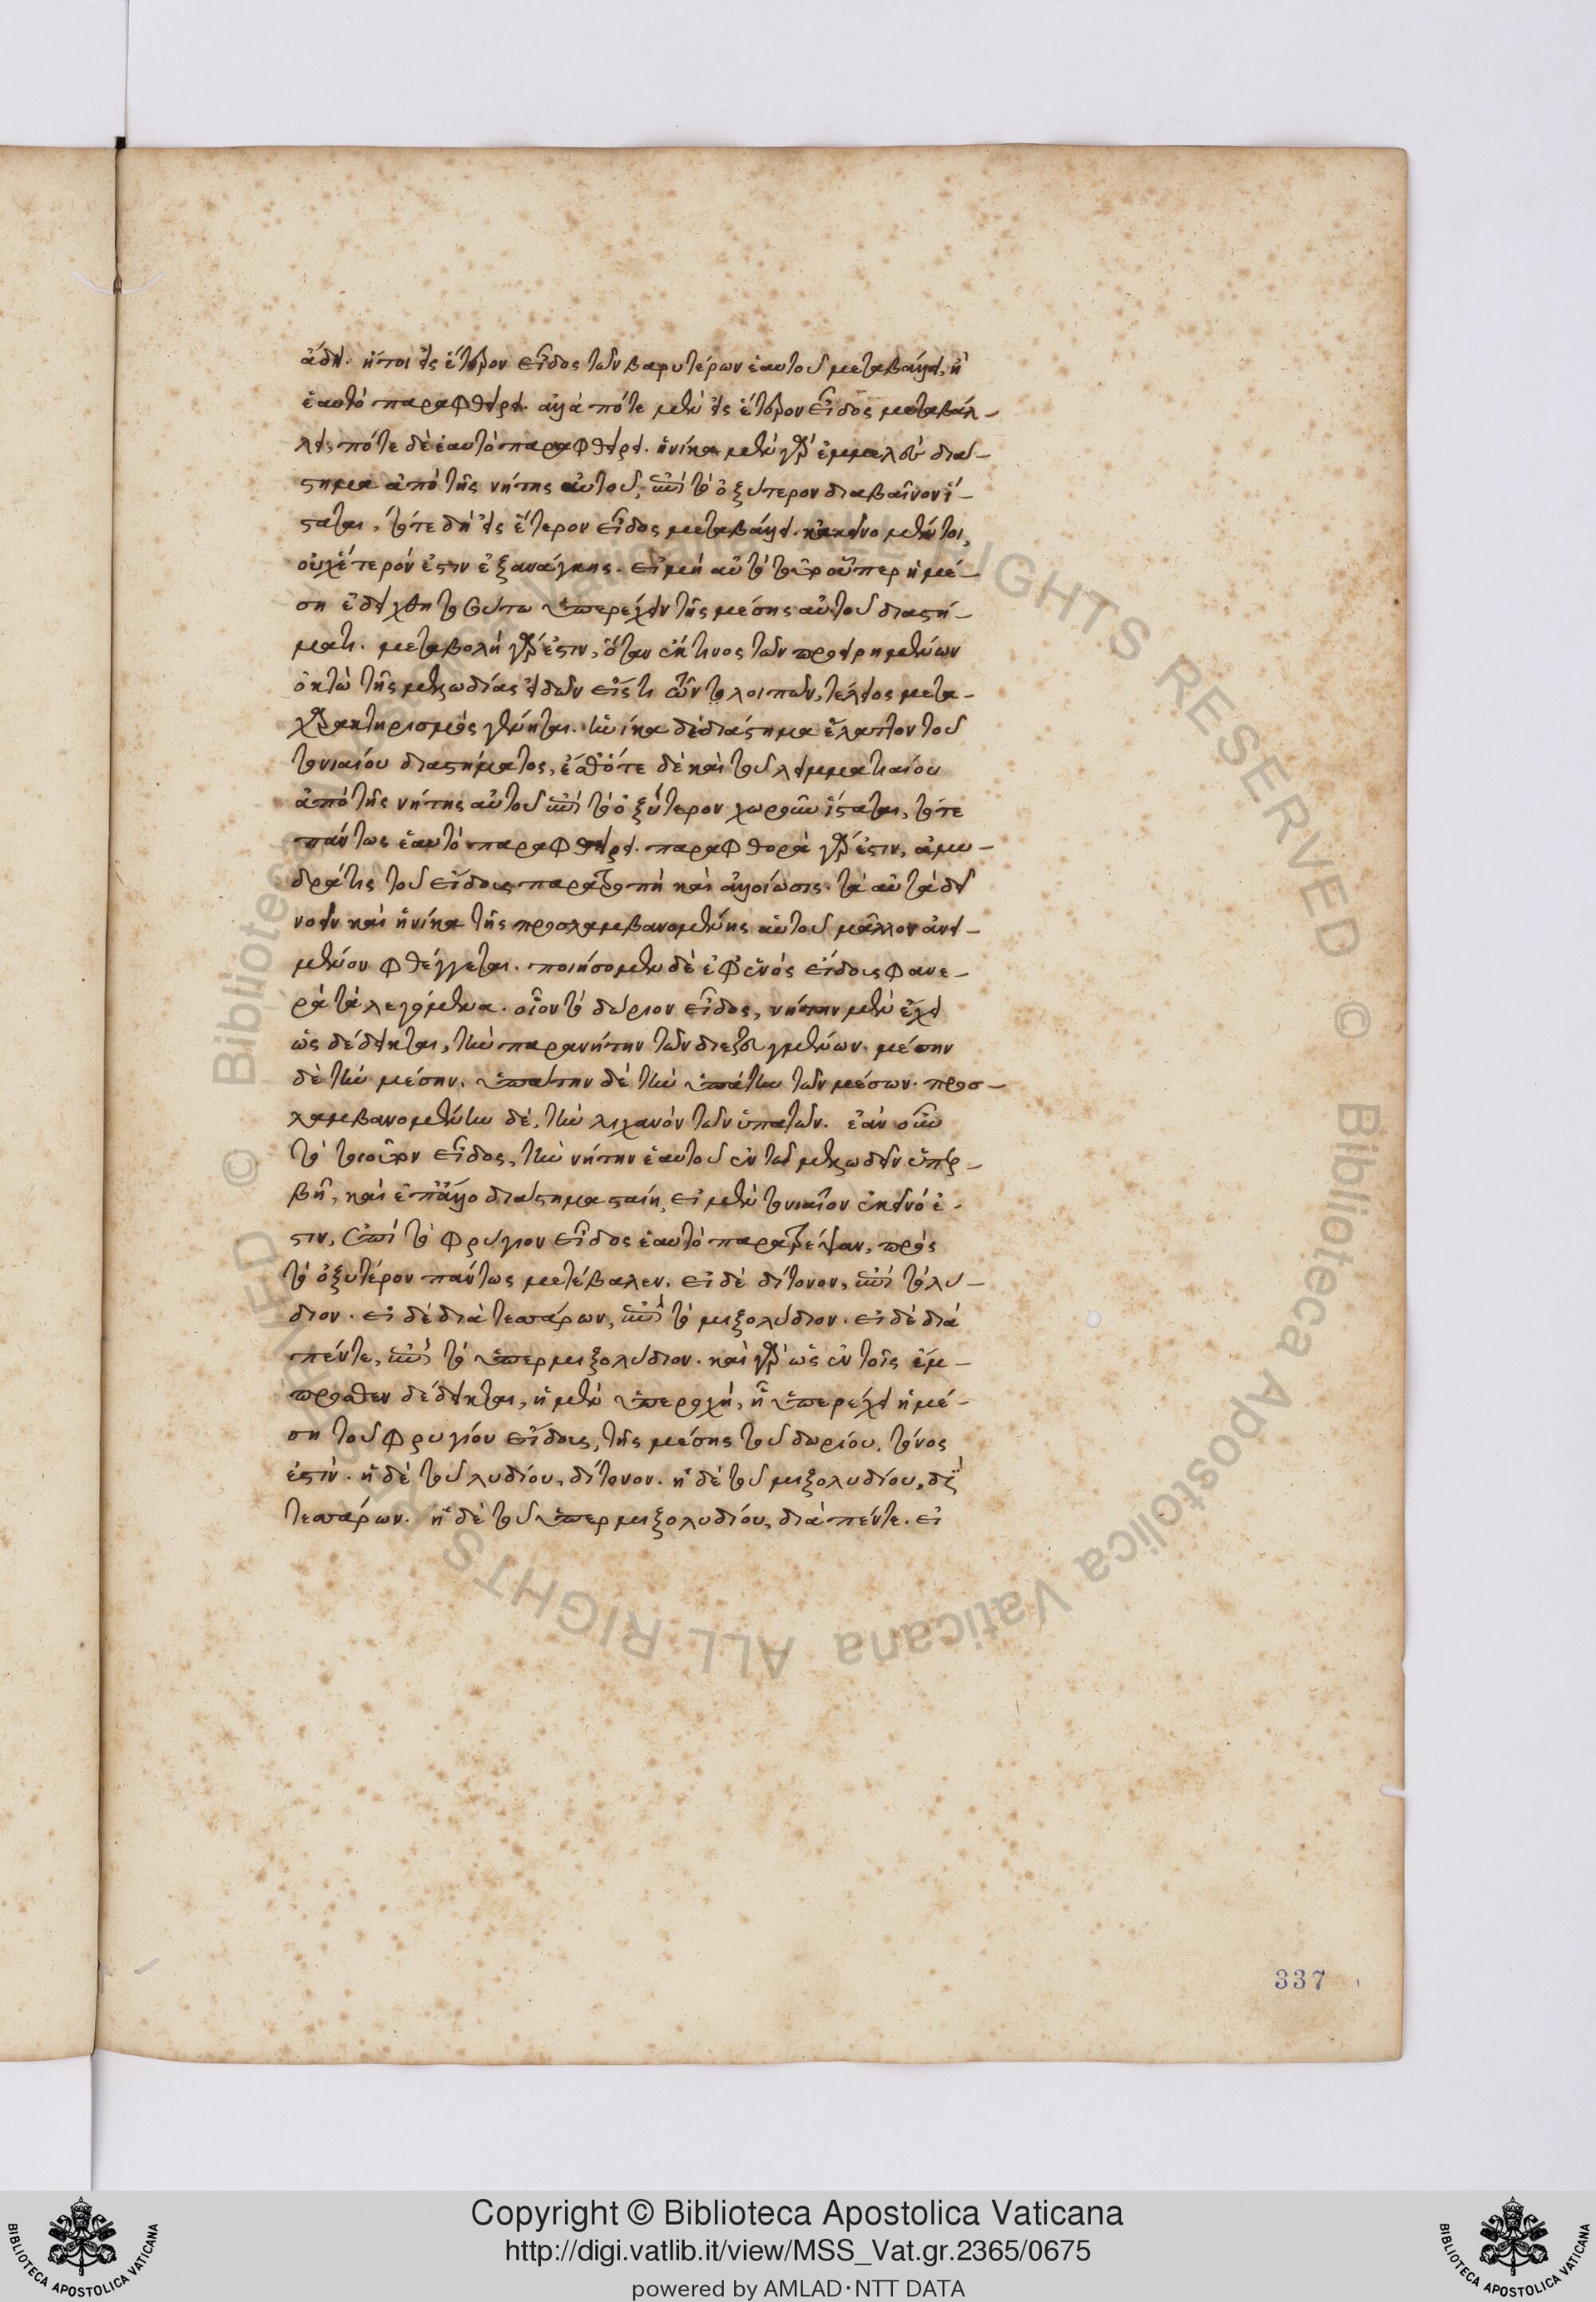 ᾄδει. ἤτοι εἰς ἕτερον εἶδος τῶν βαρυτέρων ἑαυτοῦ μεταβάλλει, ἢ
ἑαυτὸ παραφθείρει. ἀλλὰ πότε μὲν εἰς ἕτερον εἶδος μεταβάλ-
λει, πότε δὲ ἑαυτὸ παραφθείρει. ἡνίκα μὲν γὰρ ἐμμελὲς διά-
στημα ἀπὸ τῆς νήτης αὐτοῦ, ἐπὶ τὸ ὀξύτερον διαβαῖνον ἵ-
σταται, τότε δὴ εἰς ἕτερον εἶδος μεταβάλλει. κἀκεῖνο μέντοι,
οὐχ ἕτερόν ἐστιν ἐξανάγκης. εἰ μὴ αὐτὸ τοῦτο οὗπερ ἡ μέ-
ση ἐδείχθη τοσούτω ὑπερέχειν τῆς μέσης αὐτοῦ διαστή-
ματι. μεταβολὴ γάρ ἐστιν, ὅταν ἔκ τινος τῶν προειρημένων
ὀκτὼ τῆς μελωδίας εἰδῶν εἴς τι τῶν λοιπῶν, τέλειος μετα-
χαρακτηρισμὸς γένηται. ἡνίκα δὲ διάστημα ἔλαττον τοῦ
τονιαίου διαστήματος, ἔσθότε δὲ καὶ τοῦ λειμματιαίου
ἀπὸ τῆς νήτης αὐτοῦ ἐπὶ τὸ ὀξύτερον χωροῦν ἵσταται, τότε
πάντως ἑαυτὸ παραφθείρει. παραφθορὰ γάρ ἐστιν, ἀμυ-
δρά τις τοῦ εἴδους παρατροπὴ καὶ ἀλλοίωσις. τὰ αὐτὰ δεῖ
νοεῖν καὶ ἡνίκα τῆς προσλαμβανομένης αὐτοῦ μᾶλλον ἀνει-
μένον φθέγγεται. ποιήσομεν δὲ ἐφ' ἑνὸς εἴδους φανε-
ρὰ τὰ λεγόμενα. οἷον τὸ δώριον εἶδος, νήτην μὲν ἔχει
ὡς δέδεικται, τὴν παρανήτην τῶν διεζευγμένων. μέσην
δὲ τὴν μέσην. ὑπάτην δὲ τὴν ὑπάτην τῶν μέσων. προσ-
λαμβανομένην δὲ, τὴν λιχανὸν τῶν ὑπατῶν. ἐὰν οὖν
τὸ τοιοῦτον εἶδος, τὴν νήτην ἑαυτοῦ ἐν τῶ μελωδεῖν ὑπερ-
βῆ, καὶ ἐπ' ἄλλο διάστημα σταίη, εἰ μὲν τονιαῖον ἐκεῖνό ἐ-
στιν, ἐπὶ τὸ φρύγιον εἶδος ἑαυτὸ παρατρέψαν, πρὸς
τὸ ὀξυτέρον πάντως μετέβαλεν. εἰ δὲ δίτονον, ἐπὶ τὸ λύ-
διον. εἰ δὲ διὰ τεσσάρων, ἐπὶ τὸ μιξολύδιον. εἰ δὲ διὰ
πέντε, ἐπὶ τὸ ὑπερμιξολύδιον. καὶ γὰρ ὡς ἐν τοῖς ἔμ-
προσθεν δέδεικται, ἡ μὲν ὑπεροχὴ, ἧ ὑπερέχει ἡ μέ-
ση τοῦ φρυγίου εἴδους, τῆς μέσης τοῦ δωρίου, τόνος
ἐστίν. ἡ δὲ τοῦ λυδίου, δίτονον. ἡ δὲ τοῦ μιξολυδίου, διὰ
τεσσάρων. ἡ δὲ τοῦ ὑπερμιξολυδίου, διὰ πέντε. εἰ
337
Copyright © Biblioteca Apostolica Vaticana
http://digi.vatlib.it/view/MSS_Vat.gr.2365/0675
powered by AMLAD·NTT DATA